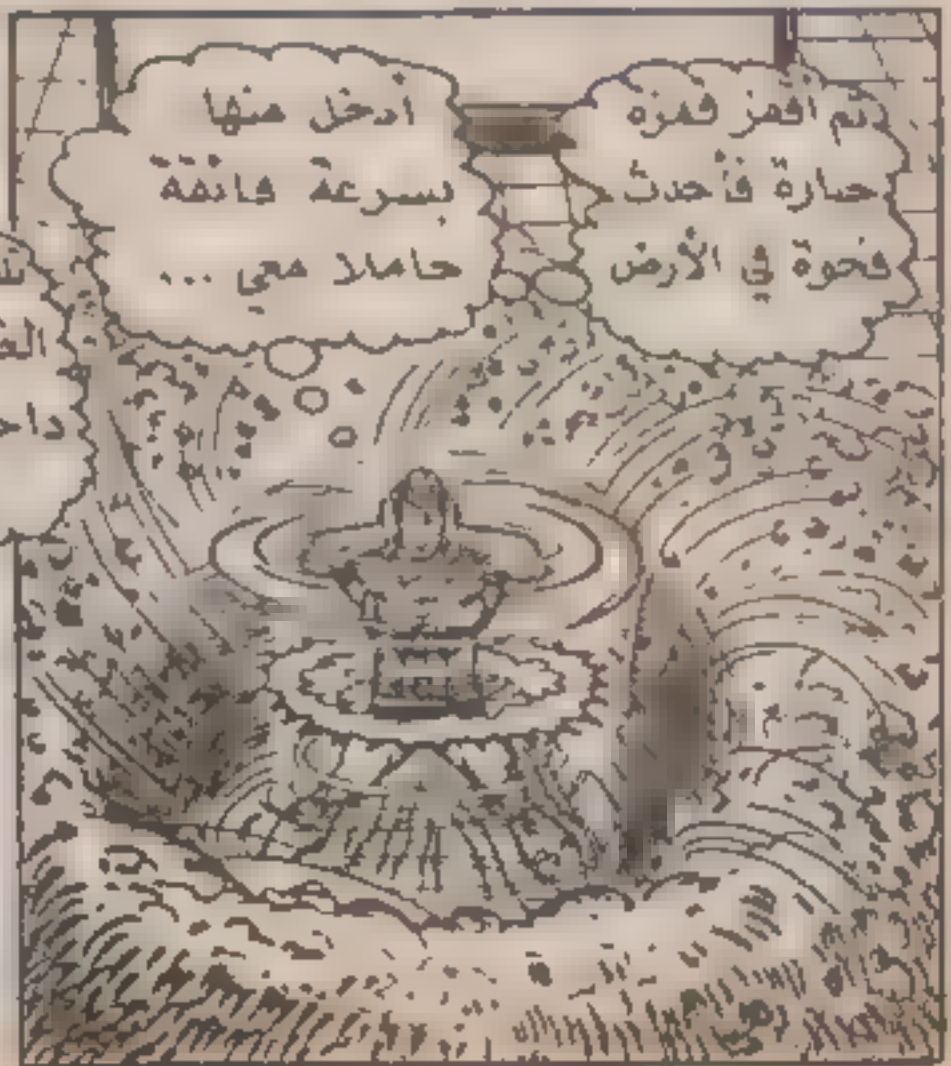 ثم اقفز قفزه
جبارة فأحدث
فجوة في الأرض
أدخل منها
بسرعة فائقة
حاملا معي ...